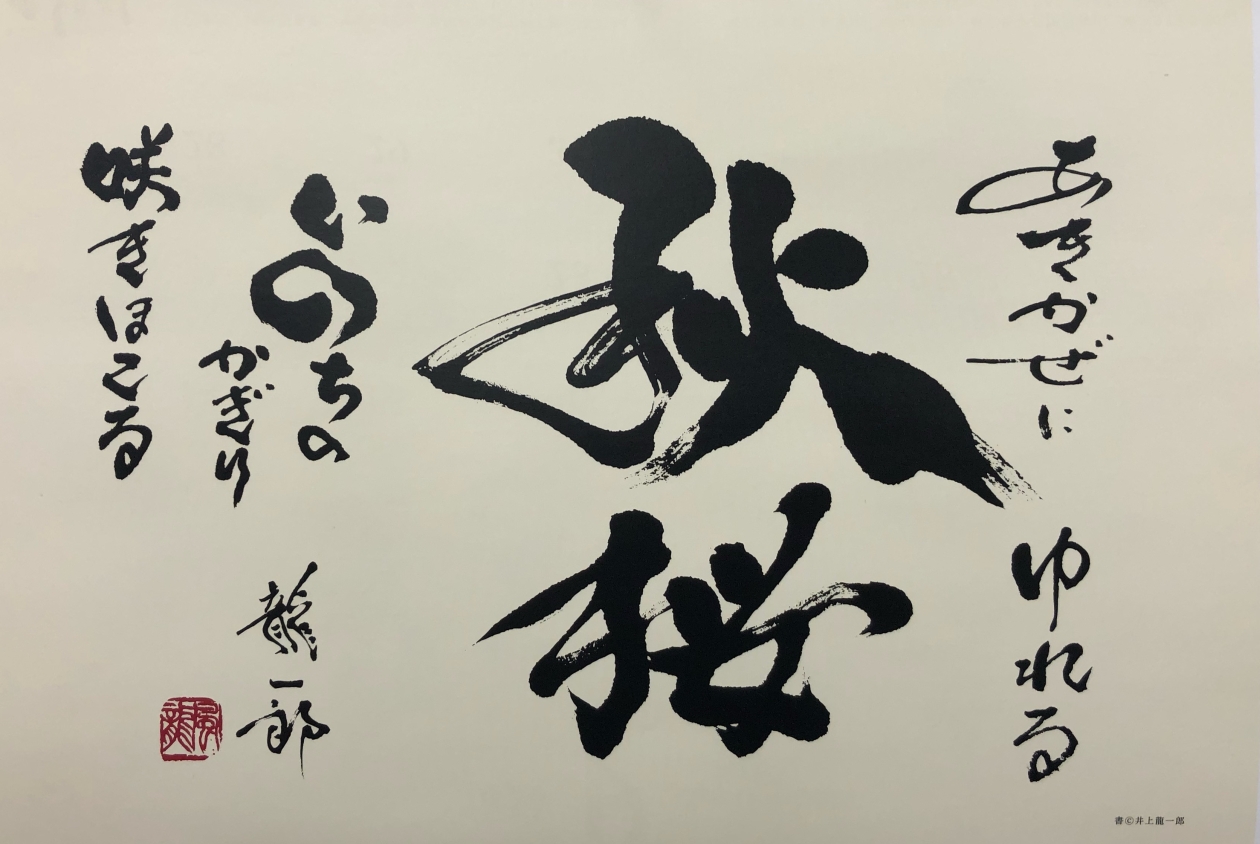 あきかぜに ゆれる
秋桜
いのちの
かぎり
咲きほこる
龍一郎
書©井上龍一郎